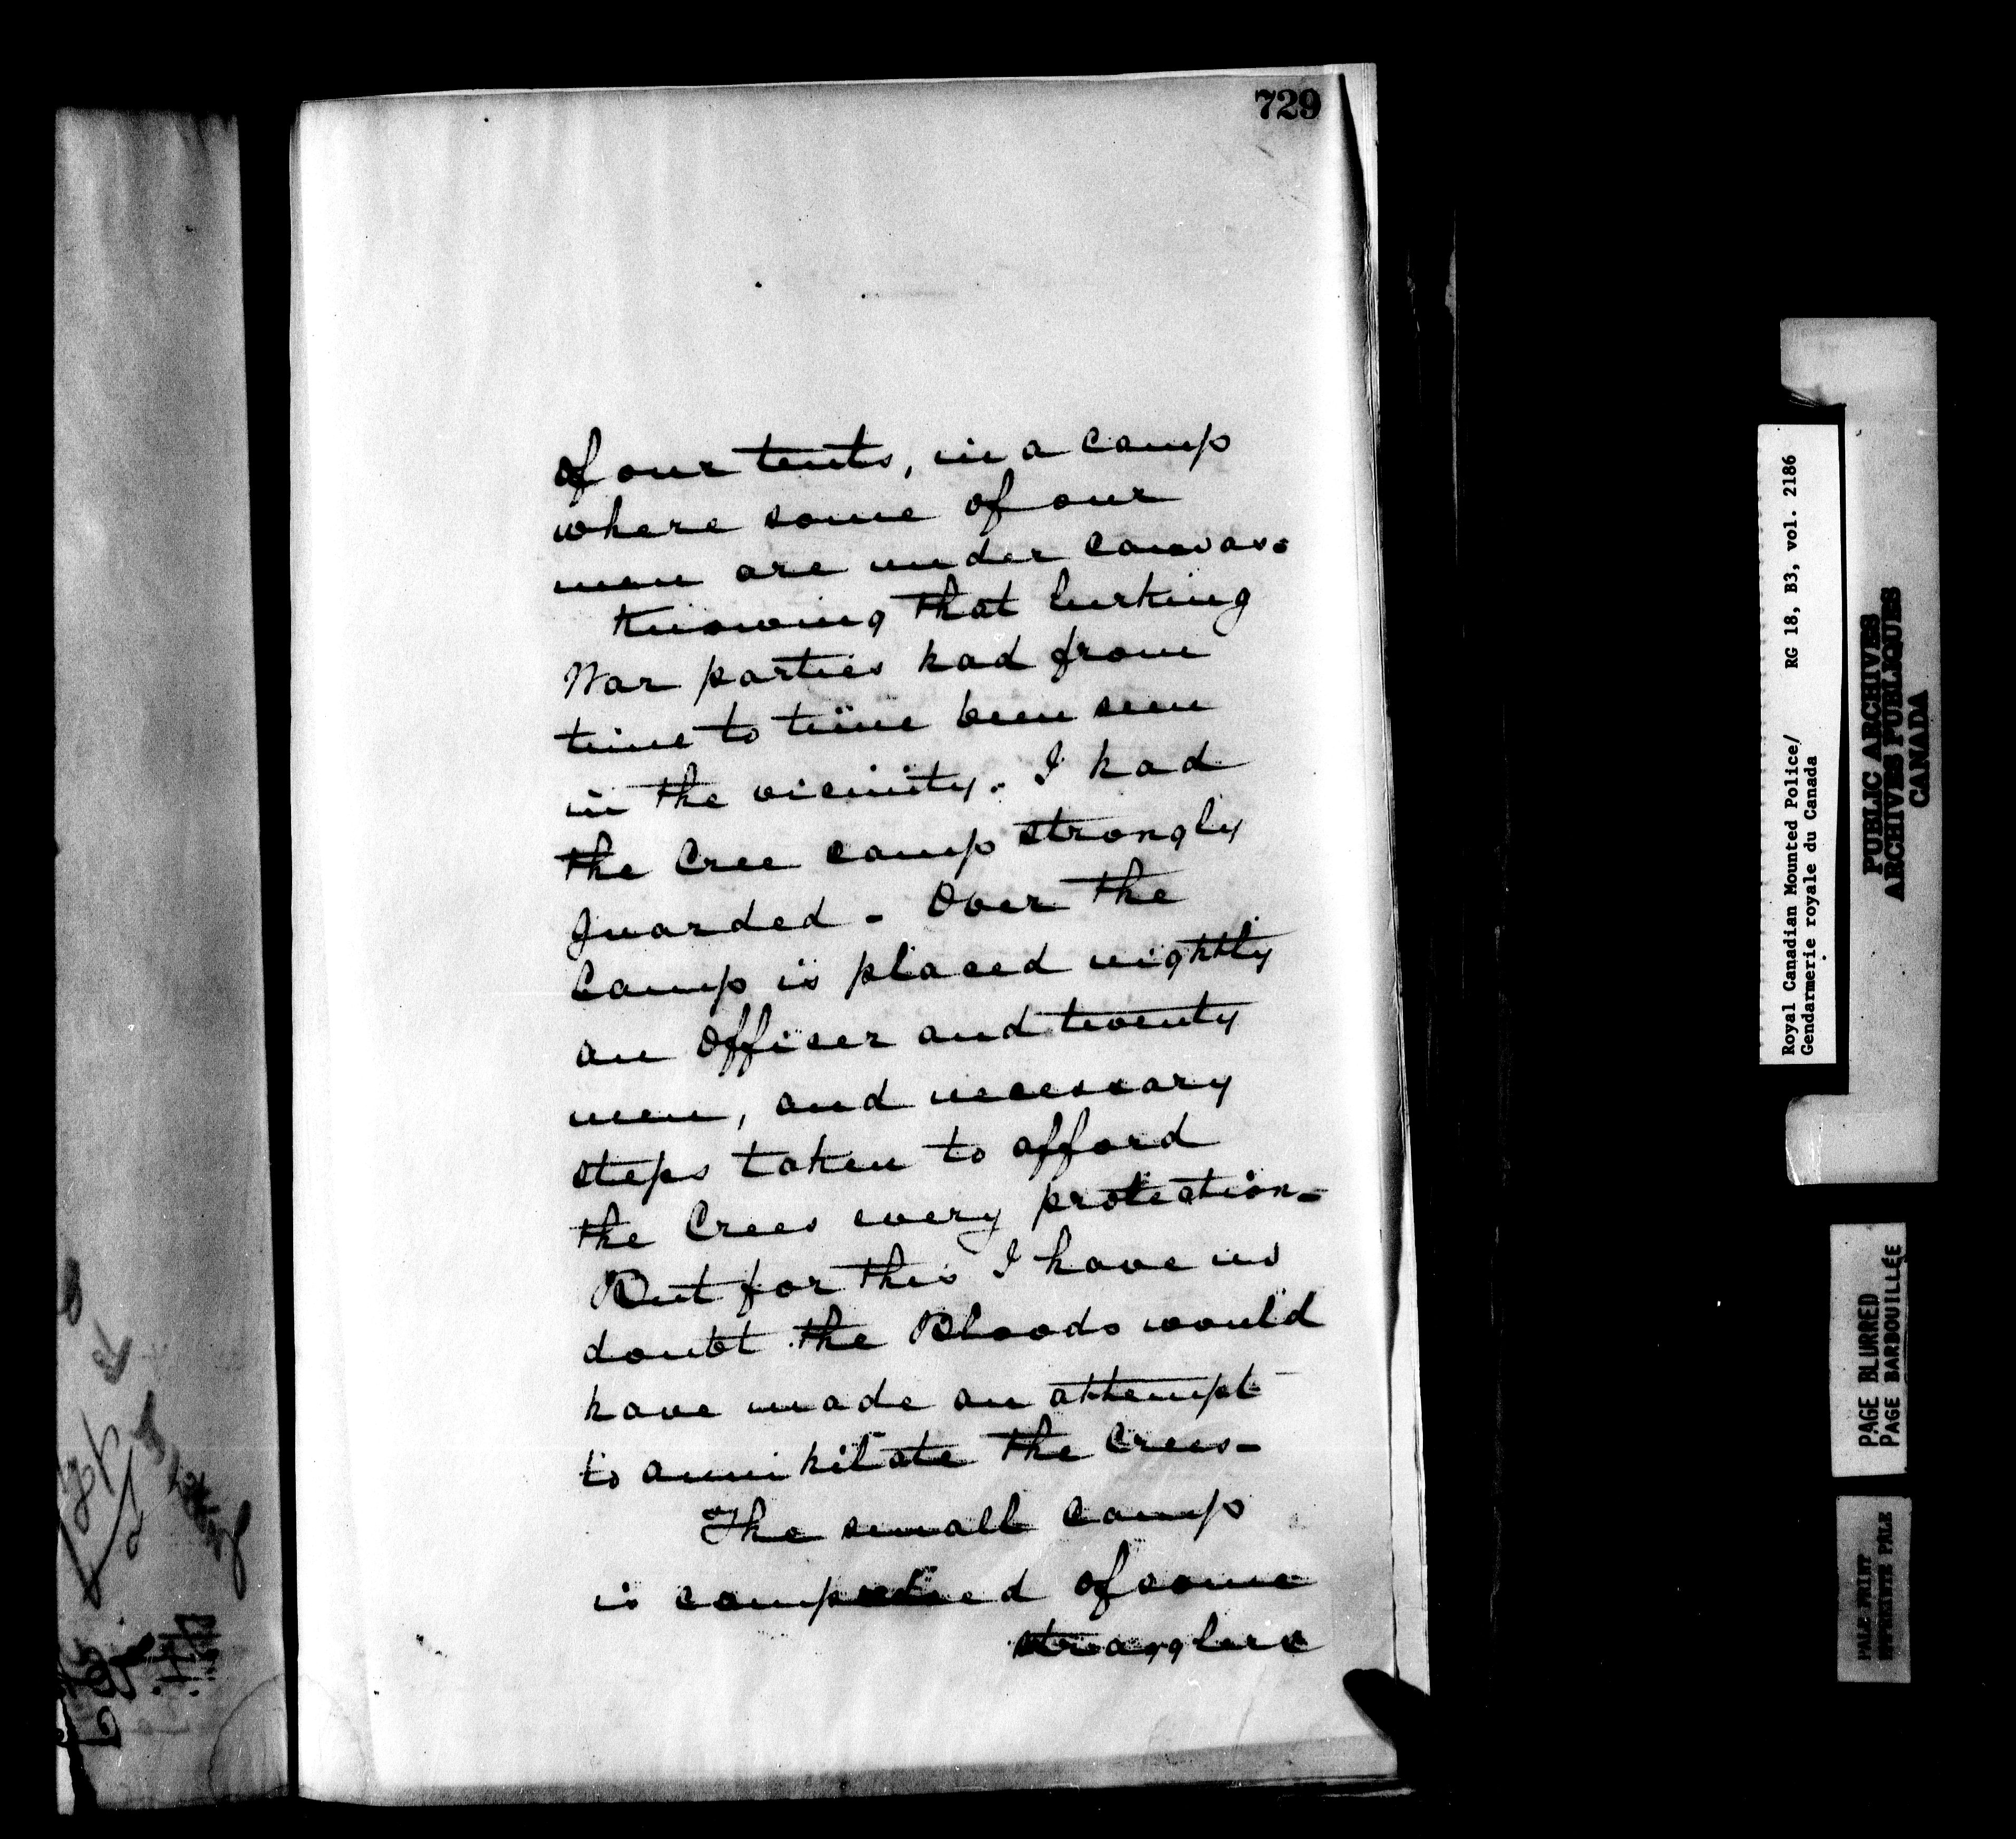 729
of our tents, in a camp
where some of our
men are under canvas.
Knowing that lurking
War parties had from
time to time been seen
in the vicinity. I had
the Cree camp strongly
guarded - Over the
Camp is placed nightly
an Officer and twenty
men, and necessary
steps taken to afford
the Crees every protection -
But for this I have no
doubt the Bloods would
have made an attempt
to annihilate the Crees -
The small camp
is composed of some
stragglers
Royal Canadian Mounted Police/ RG 18, B3, vol. 2186
Gendarmerie royale du Canada
PUBLIC ARCHIVES
ARCHIVES PUBLIQUES
CANADA
PAGE BLURRED
PAGE BARBOUILLÉE
PALE PRINT